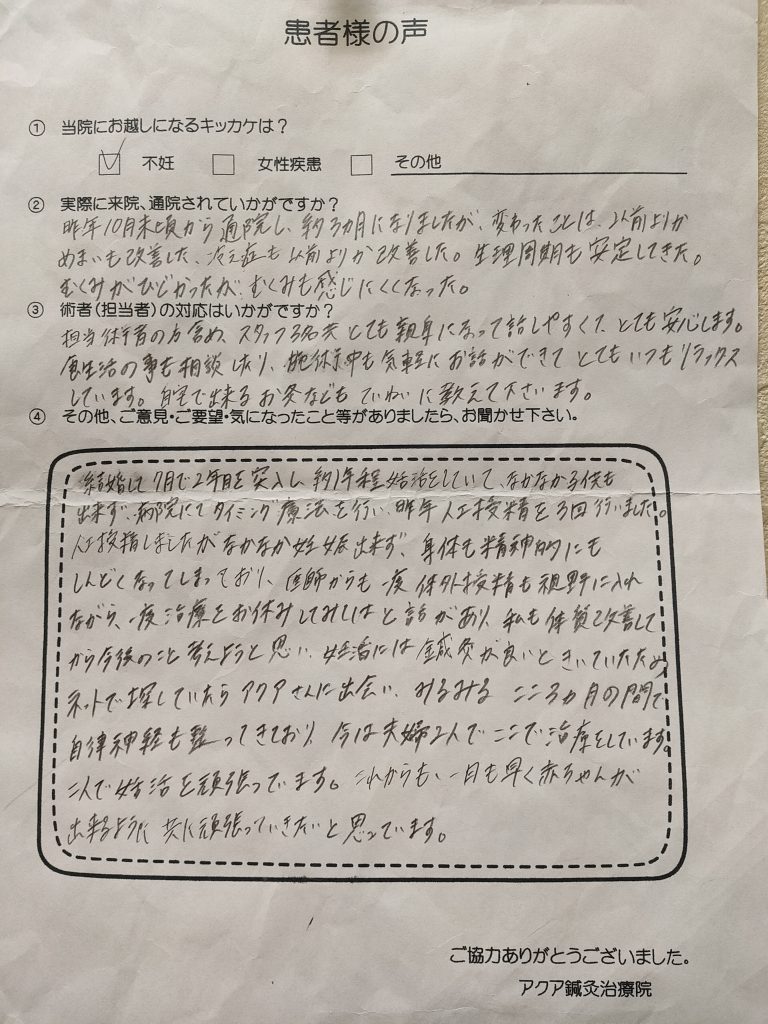 患者様の声
① 当院にお越しになるキッカケは？
不妊 女性疾患 その他
② 実際に来院、通院されていかがですか？
昨年10月末頃から通院し、約3ヵ月になりましたが、変わったことは、以前よりか
めまいも改善した、冷え症も以前よりか改善した。生理周期も安定してきた。
むくみがひどかったが、むくみも感じにくくなった。
③ 術者(担当者)の対応はいかがですか？
担当術者の方含め、スタッフ3名共とても親身になって話しやすくて、とても安心します。
食生活の事も相談したり、施術中も気軽にお話ができてとてもいつもリラックス
しています。自宅で出来るお灸などもていねいに教えて下さいます。
④ その他、ご意見・ご要望・気になったこと等がありましたら、お聞かせ下さい。
結婚して7月で2年目を突入し、約1年程妊活をしていて、なかなか子供も
出来ず、病院にてタイミング療法を行い、昨年人工授精を3回行いました。
人工授精しましたがなかなか妊娠出来ず、身体も精神的にも
しんどくなってしまっており、医師からも一度体外授精も視野に入れ
ながら、一度治療をお休みしてみてはと話があり、私も体質改善して
から今後のこと考えようと思い、妊活には鍼灸が良いときいていたため
ネットで探していたらアクアさんに出会い、みるみるここ3ヵ月の間で
自律神経も整ってきており、今は夫婦2人でここで治療をしています。
二人で妊活を頑張っています。これからも、一日も早く赤ちゃんが
出来るように共に頑張っていきたいと思っています。
ご協力ありがとうございました。
アクア鍼灸治療院